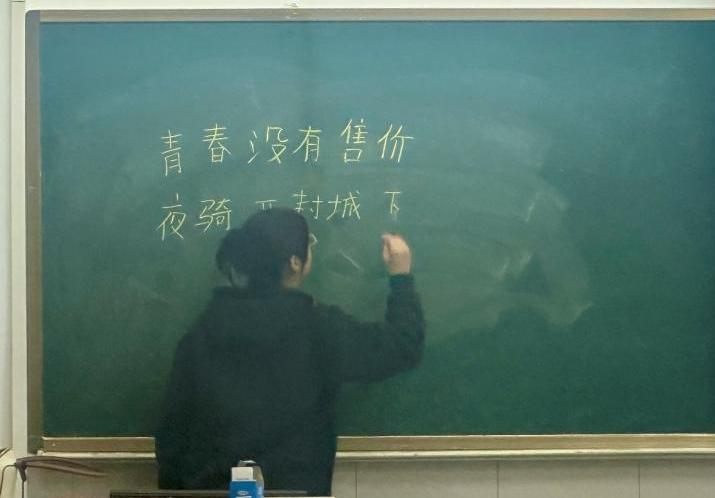 青春没有售价
夜骑开封城下